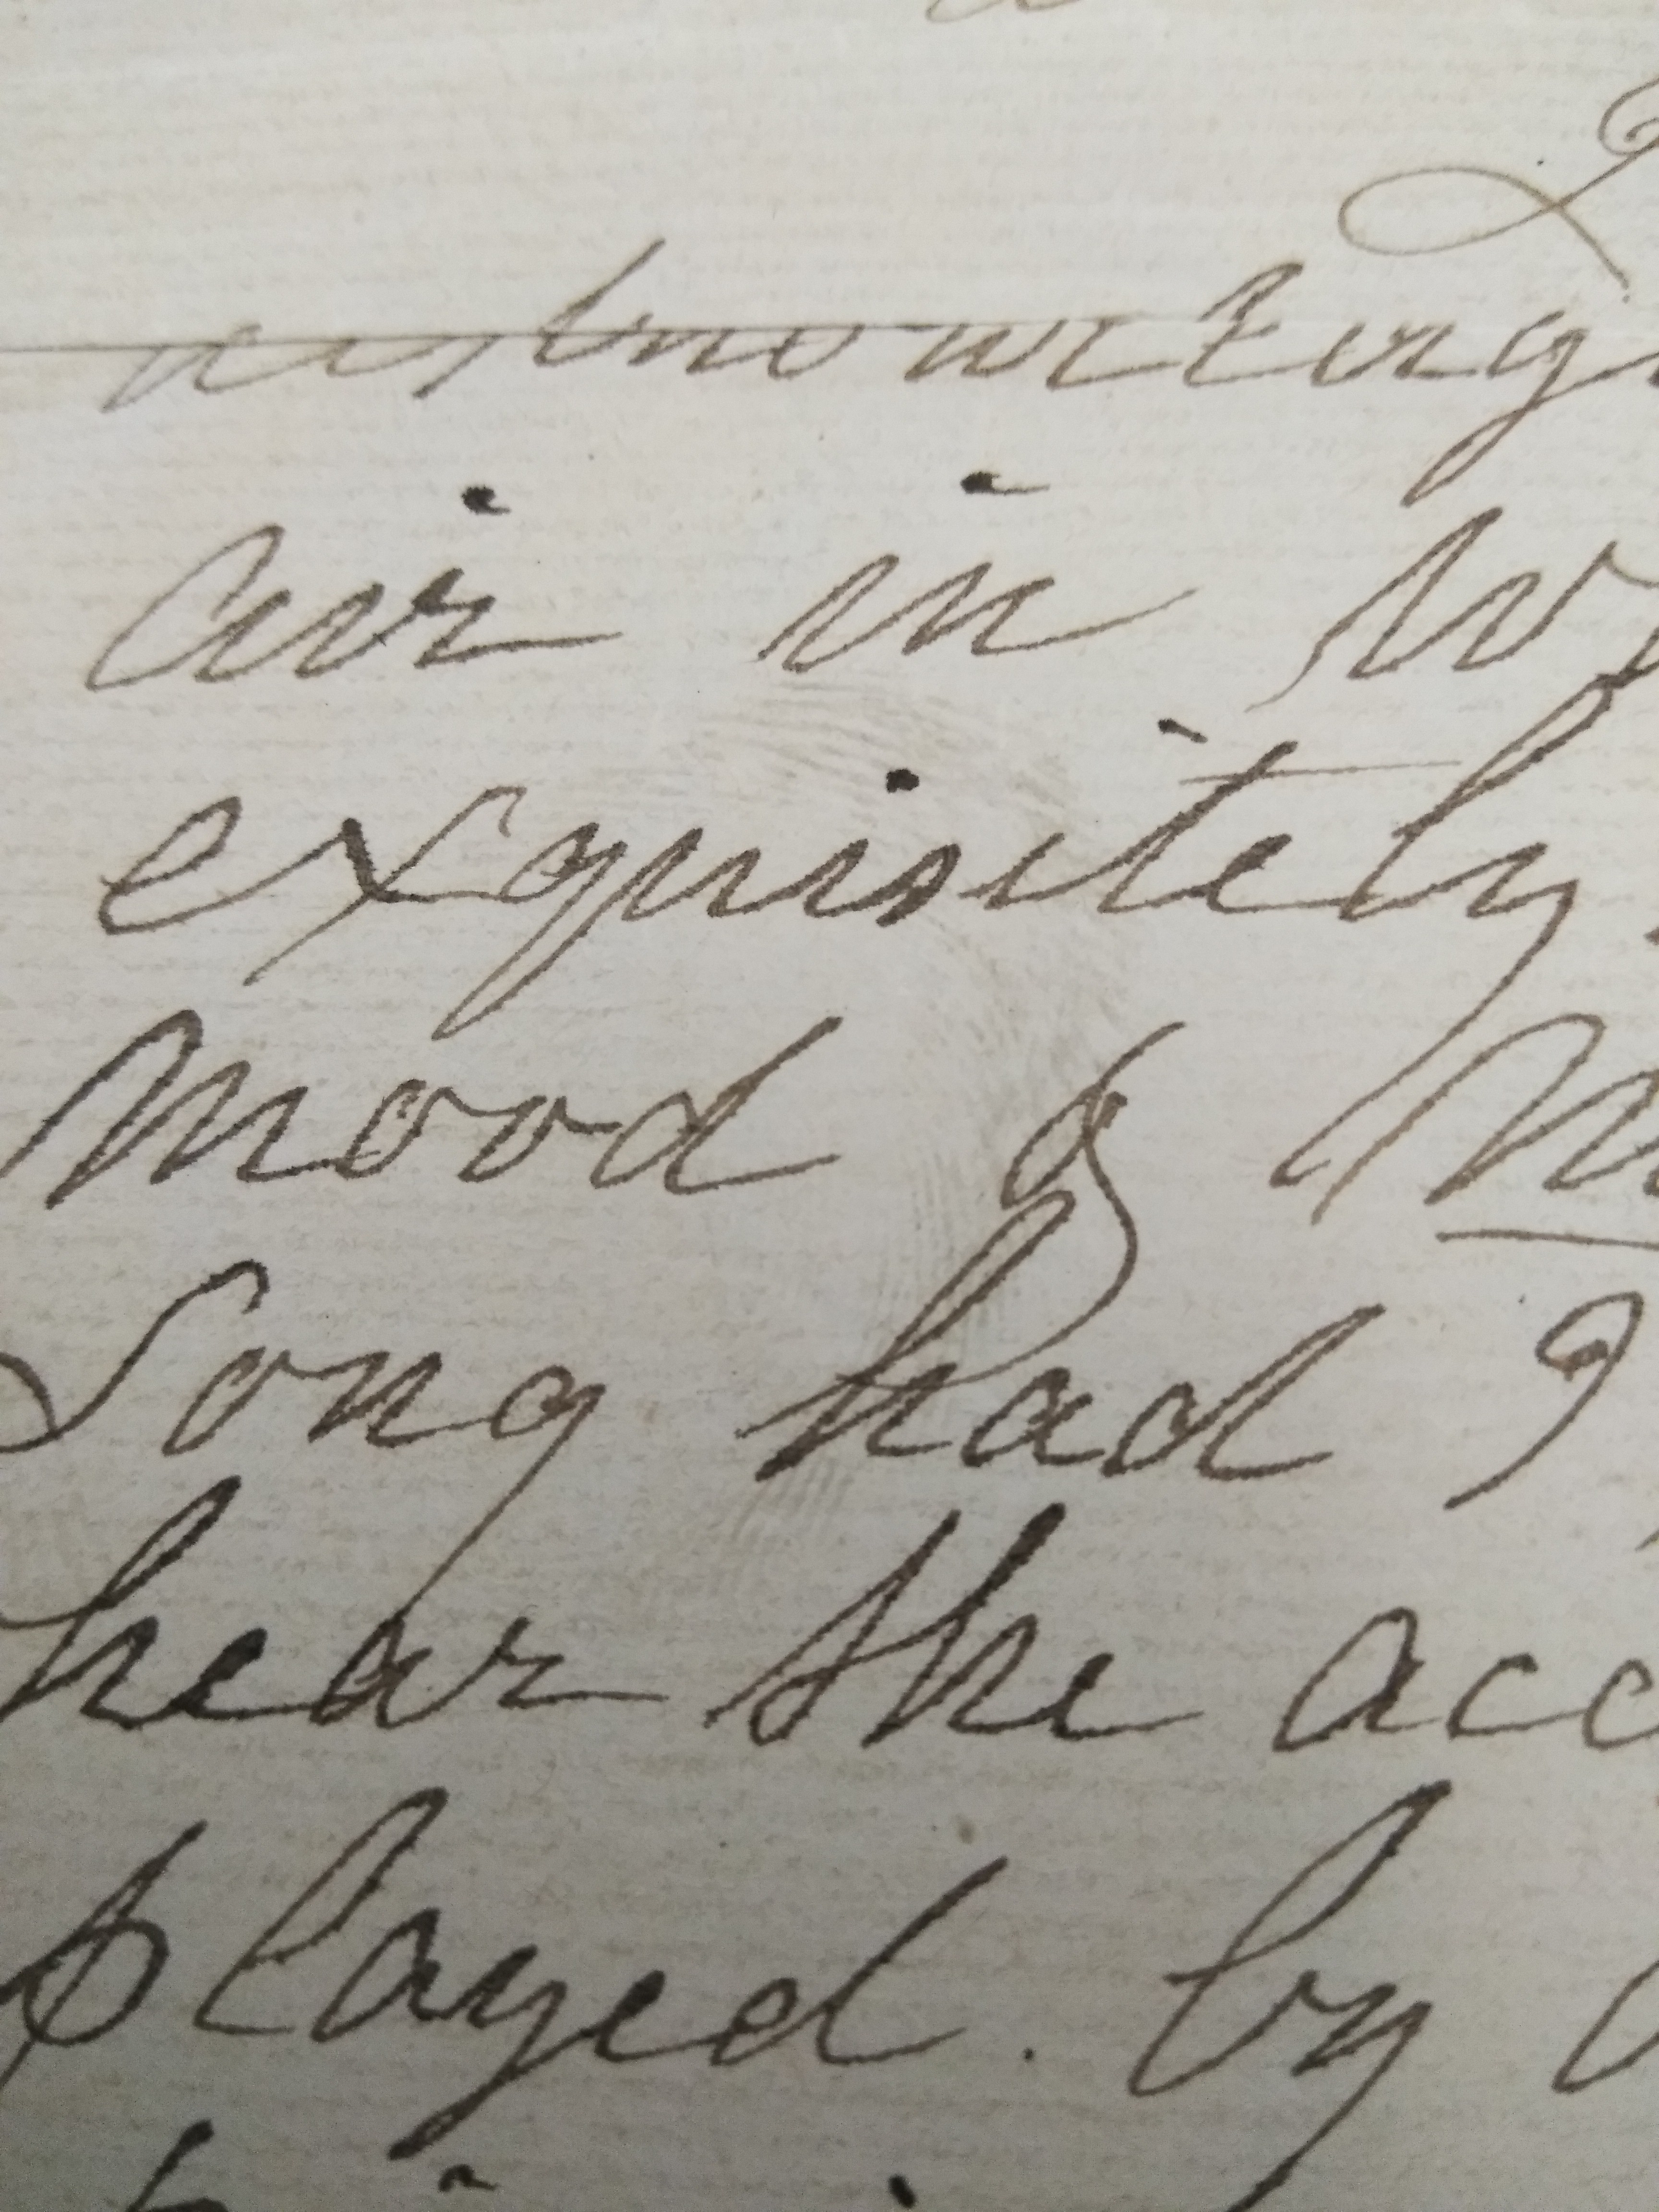 air in
exquisitely
mood &
Song had I
hear the acc
played. by